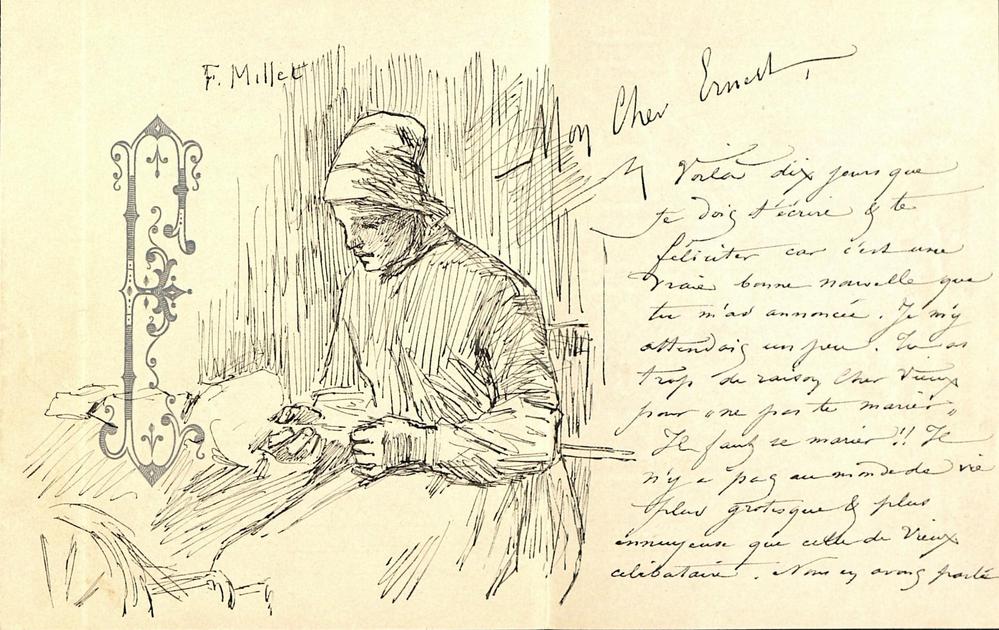 F. Millet
Mon Cher Ernest,
Voilà dix jours que
je dois t'écrire & te
féliciter car c'est une
vraie bonne nouvelle que
tu m'as annoncée. Je m'y
attendais un peu. Tu as
trop de raison Cher Vieux
pour "ne pas te marier"
Il faut se marier!! Il
n'y a pas au monde de vie
plus grotesque & plus
ennuyeuse que celle de Vieux
célibataire. Nous en avons parlé